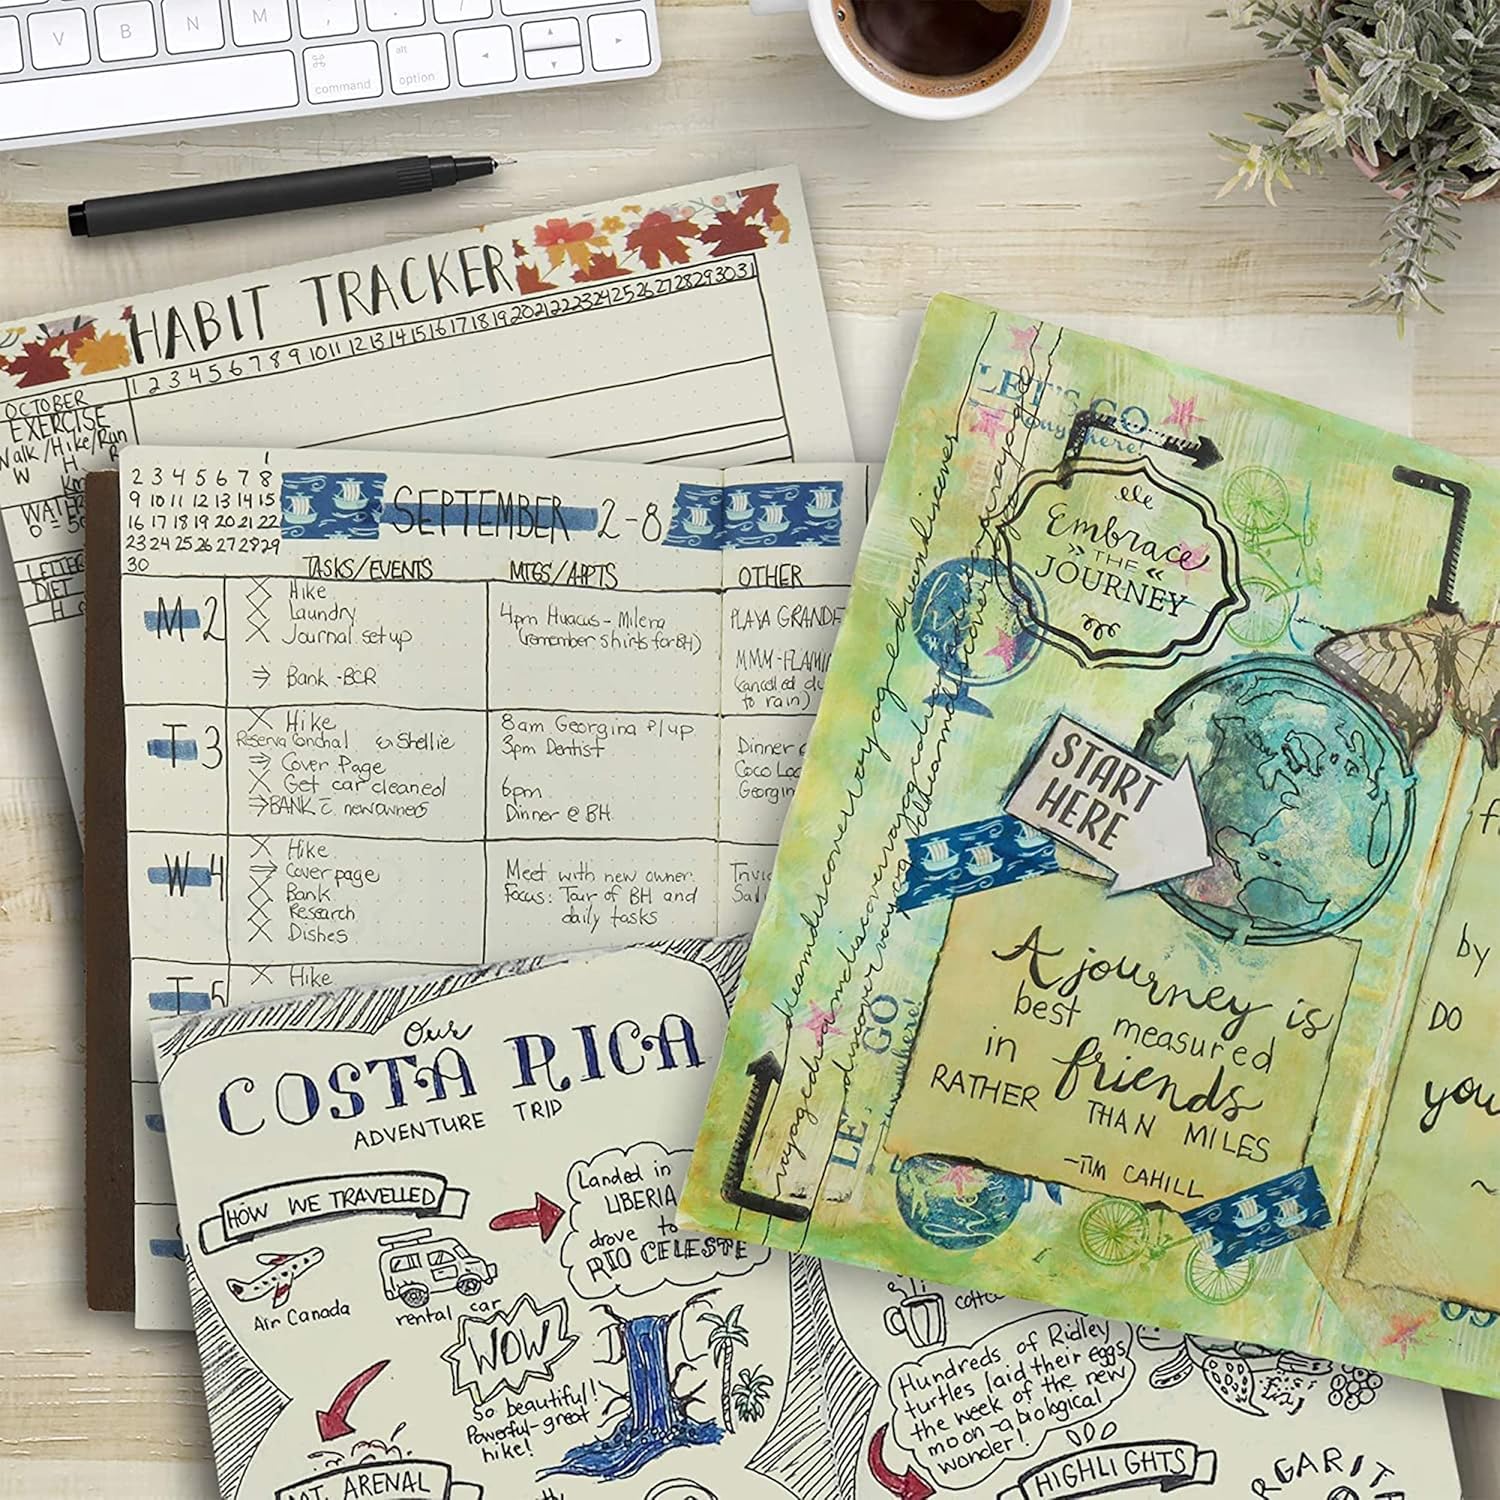 V B N M
command
alt
option
HABIT TRACKER
1 2 3 4 5 6 7 8 9 10 11 12 13 14 15 16 17 18 19 20 21 22 23 24 25 26 27 28 29 30 31
OCTOBER
EXERCISE
Walk/Hike/Run
W H R
Km
WATER
LETTER
DIET
1
2 3 4 5 6 7 8
9 10 11 12 13 14 15
16 17 18 19 20 21 22
23 24 25 26 27 28 29
30
SEPTEMBER 2-8
TASKS/EVENTS MTGS/APPTS OTHER
M 2
Hike
Laundry
Journal set up
Bank - BCR
4pm Huacas - Milena
(remember shirts for BH)
PLAYA GRANDE
MMM-FLAMI
(cancelled du
to rain)
T 3
Hike
Reserva Conchal Shellie
Cover Page
Get car cleaned
BANK c newowners
8am Georgina P/up
3pm Dentist
6pm
Dinner @ BH
Dinner
Coco Loc
Georgin
W 4
Hike
Cover page
Bank
Research
Dishes
Meet with new owner
Focus: Tour of BH and
daily tasks
Trivi
Sal
T 5
Hike
Our
COSTA RICA
ADVENTURE TRIP
HOW WE TRAVELLED
Air Canada
rental car
Landed in
LIBERIA
drove to
RIO CELESTE
WOW
So beautiful!
Powerful-great
hike!
MT. ARENAL
coffe
Hundreds of Ridley
turtles laid their eggs
the week of the new
moon - a biological
wonder!
HIGHLIGHTS
RGARIT
LET'S GO
anywhere!
Embrace
THE
JOURNEY
START
HERE
A journey is
best measured
in friends
RATHER THAN MILES
-TIM CAHILL
GO
by
DO
you